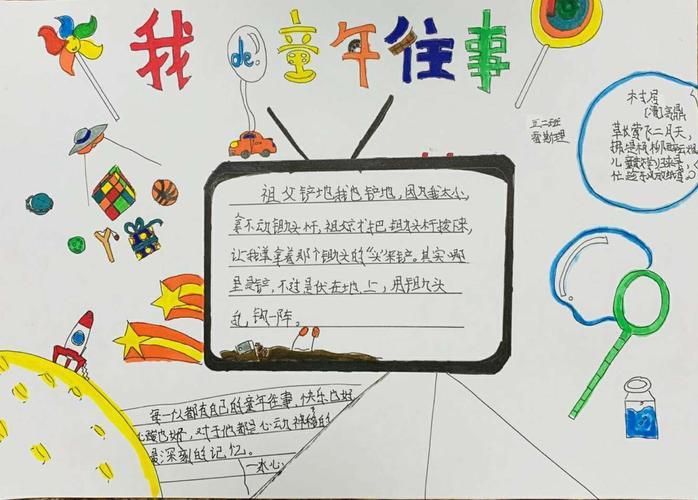 我de童年往事
五二班
村居
[清]高鼎
草长莺飞二月天
拂堤杨柳醉春烟
儿童散学归来早
忙趁东风放纸鸢
祖父铲地我也铲地,因为我太小,
拿不动锄头杆,祖父才把锄头杆拔下来,
让我单拿着那个锄头的“头”来铲。其实哪
里是铲,不过是伏在地上,用锄头
乱,钩一阵。
每一人都有自己的童年往事,快乐也好
心酸也好,对于他都是心动神移的
最深刻的记忆。
—冰心